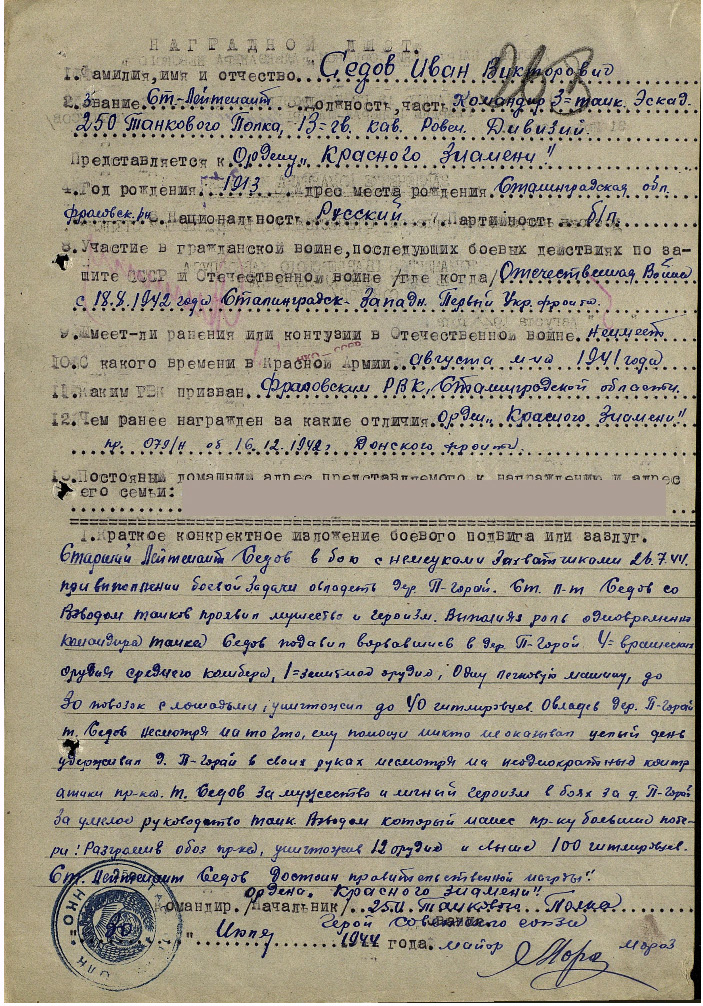 НАГРАДНОЙ ЛИСТ.
1. Фамилия, имя и отчество. Седов Иван Викторович
2. Звание. Ст-Лейтенант должность, часть Командир 3= танк. Эскад.
250 Танкового Полка, 13= гв. кав. Ровен. Дивизий.
Представляется к Ордену „Красного Знамени"
4. Год рождения. 1913 адрес места рождения Сталинградская обл.
Национальность Русский Партийность б/п
8. Участие в гражданской войне, последующих боевых действиях по за-
щите СССР и Отечественной войне /где когда/ Отечественная Война
с 18.8.1942 года Сталинградск- Западн. Первый Укр. фронта.
9. Имеет-ли ранения или контузии в Отечественной войне. неимеет
10. С какого времени в Красной Армии. августа м-ца 1941 года
11. Каким РВК призван. Фроловским РВК, Сталинградской области.
12. Чем ранее награжден за какие отличия. орден „Красного Знамени"
пр. 079/н от 16.12.1942г Донского фронта.
13. Постоянный домашний адрес представляемого к награждению и адрес
его семьи:
1. Краткое конкретное изложение боевого подвига или заслуг.
Старший Лейтенант Седов в бою с немецкими Захватчиками 26.7.44.
при выполнении боевой Задачи овладеть дер. П-Горай. Ст. л-т Седов со
Взводом танков проявил мужество и героизм. Выполняя роль одновременно
командира танка Седов подавил ворвавшись в дер. П-Горай 4= вражеских
орудия среднего калибера, 1= зенитное орудие, Одну легковую машину, до
30 повозок с лошадьми, уничтожил до 40 гитлеровцев. Овладев дер. П-Горай
т. Седов несмотря на то что, ему помощи никто не оказывал целый день
удерживал д. П-Горай в своих руках несмотря на неоднократные контр
атаки пр-ка. т. Седов За мужество и личный героизм в боях за д. П-Горай
За умелое руководство танк. Взводом который нанес пр-ку большие поте-
ри! Разгромив обоз пр-ка, уничтожив 12 орудий и свыше 100 гитлеровцев.
Ст. Лейтенант Седов достоин правительственной награды!
ордена „Красного Знамени"
Командир /Начальник/ 250 Танкового Полка
Герой Советского союза
1944 года. майор Мороз